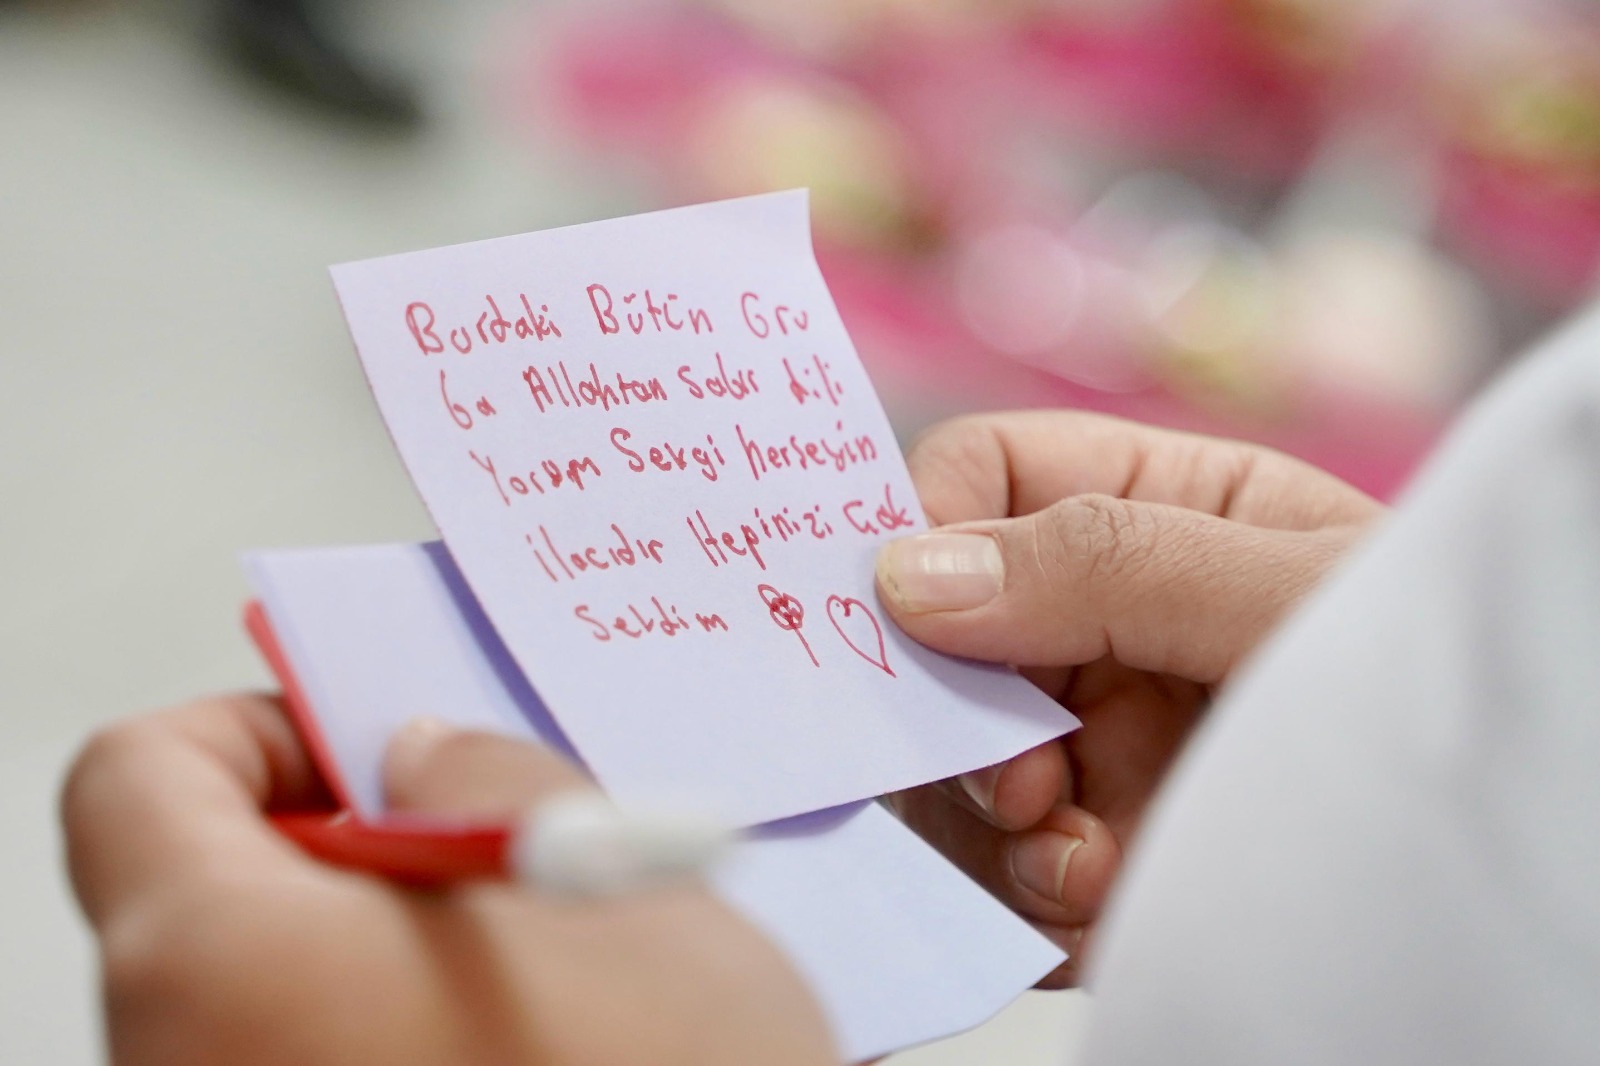 Burdaki Bütün Gru
ba Allahtan Sabır dili
Yorum Sevgi herşeyin
ilacıdır Hepinizi Çok
Sevdim